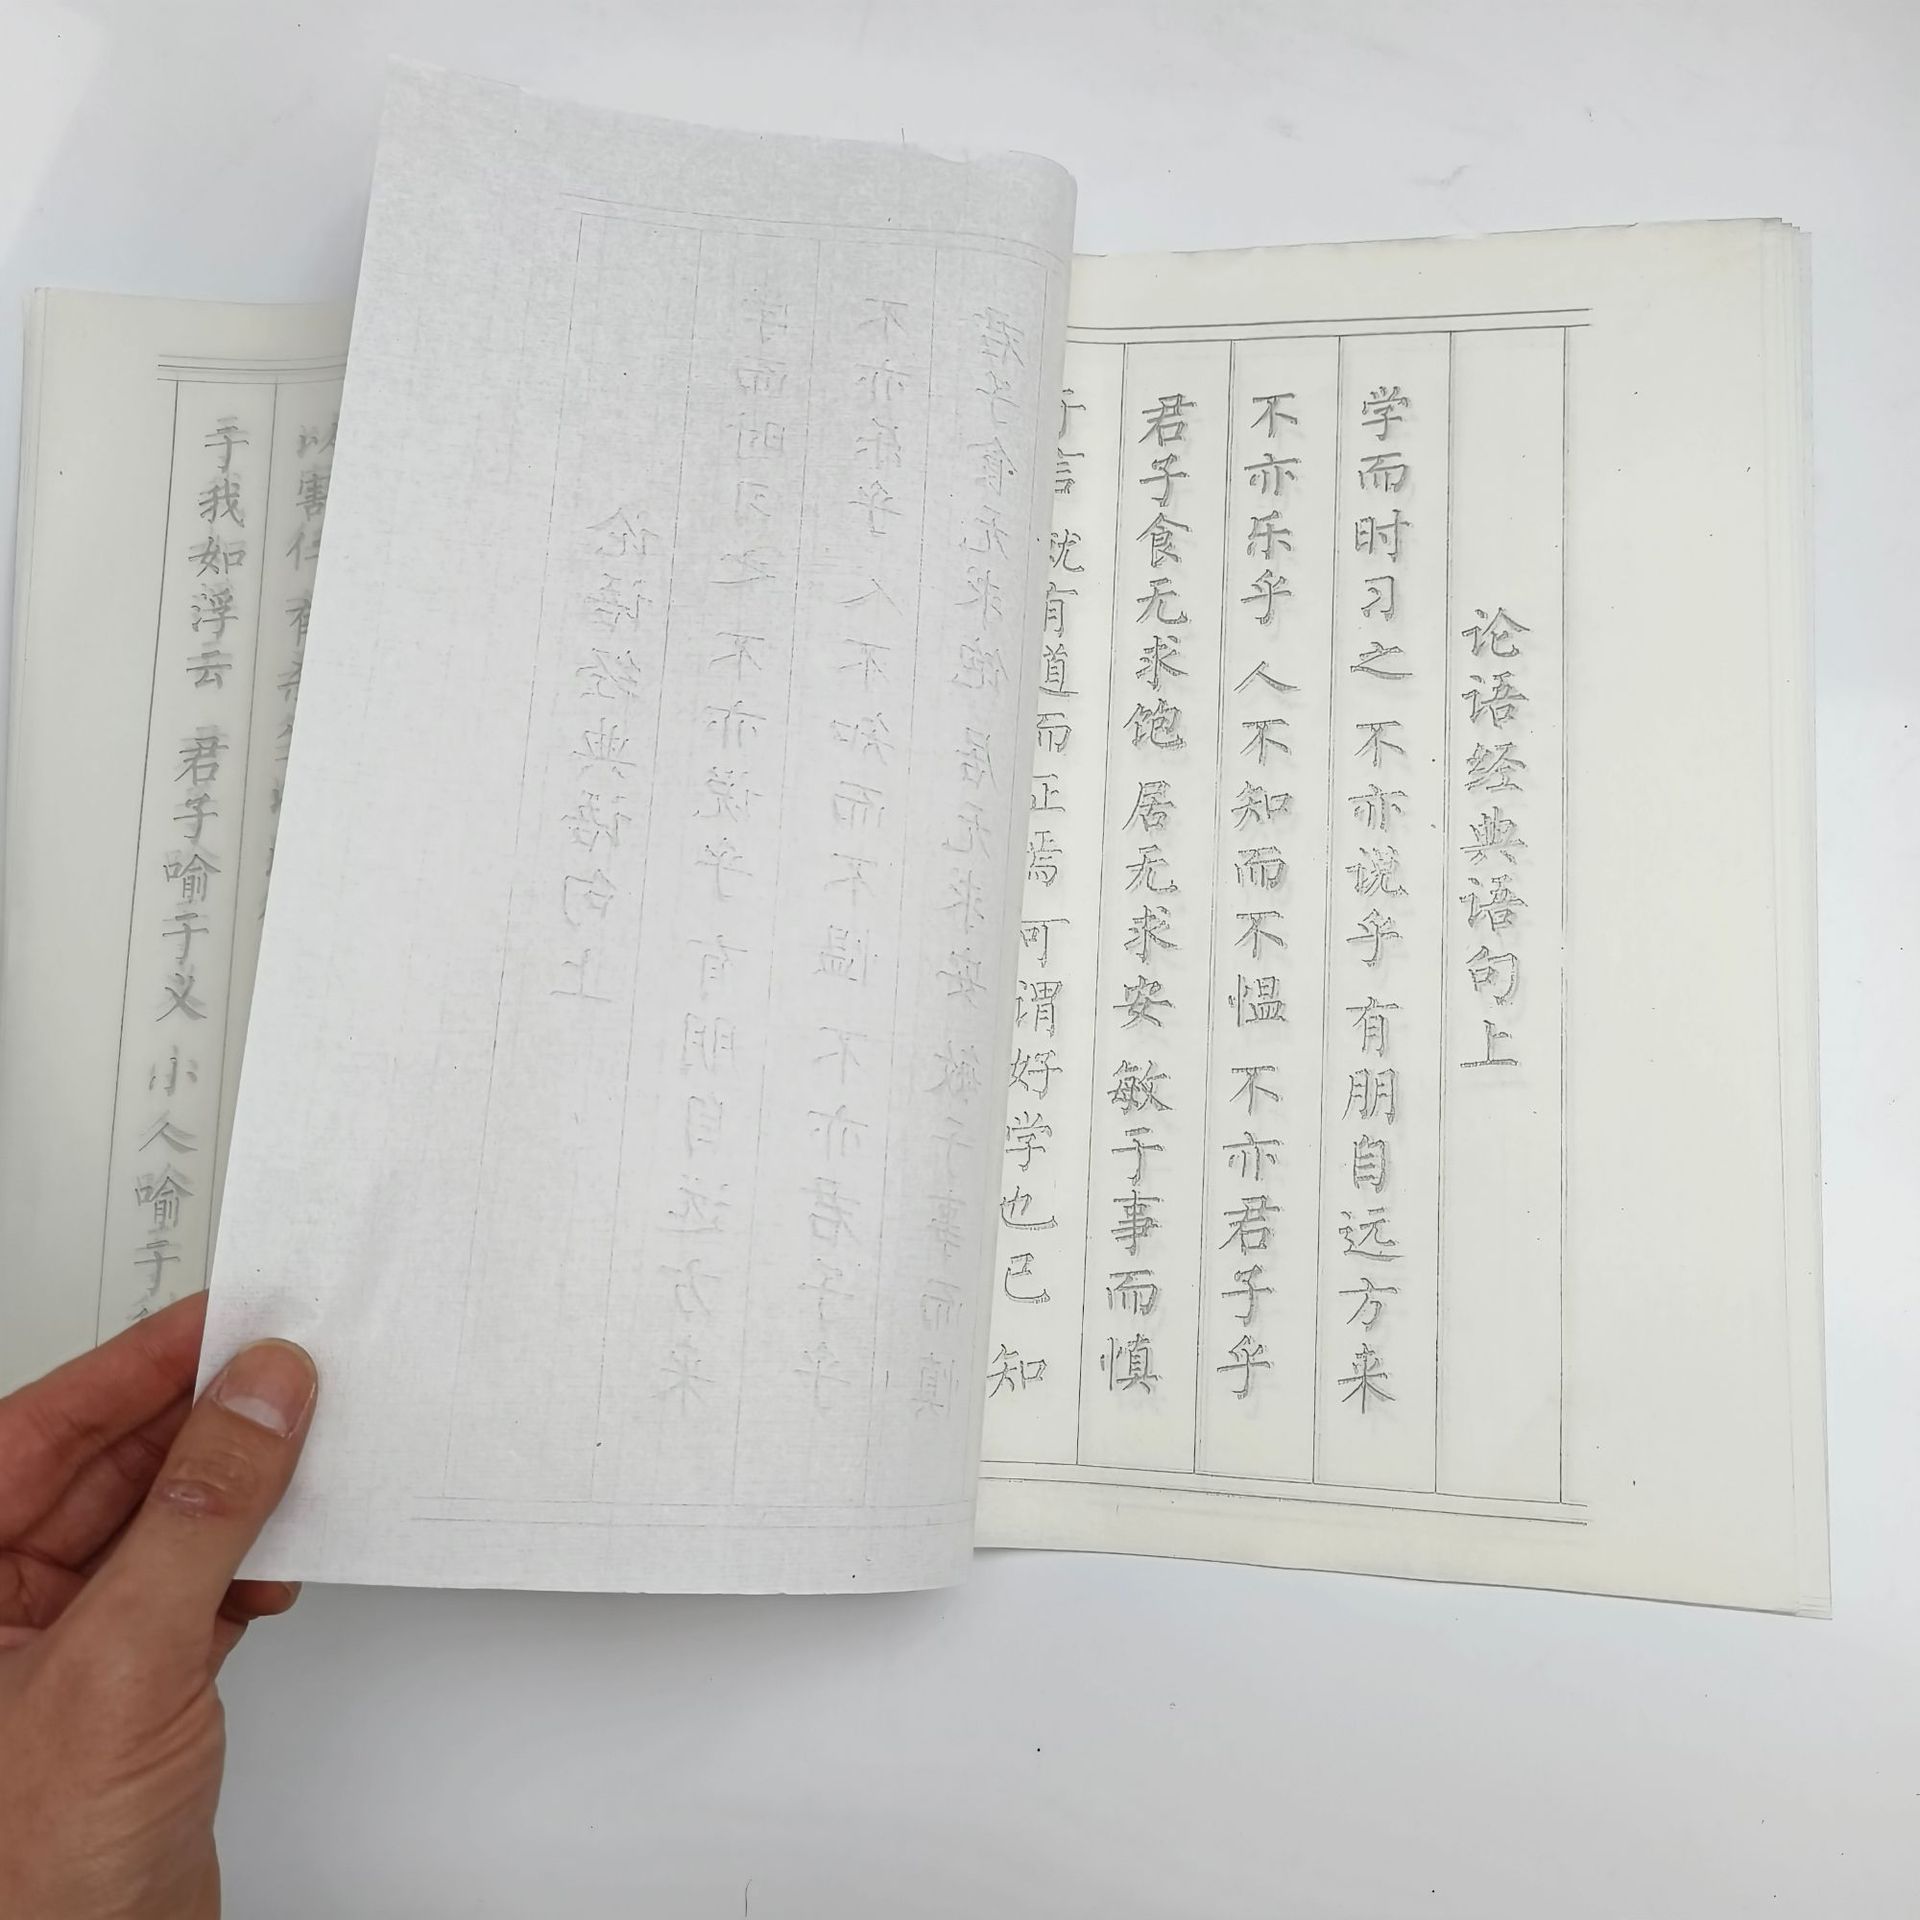 论语经典语句上
学而时习之 不亦说乎 有朋自远方来
不亦乐乎 人不知而不愠 不亦君子乎
君子食无求饱 居无求安 敏于事而慎
于言 就有道而正焉 可谓好学也已 知
以害仁 有杀
于我如浮云 君子喻于义 小人喻于